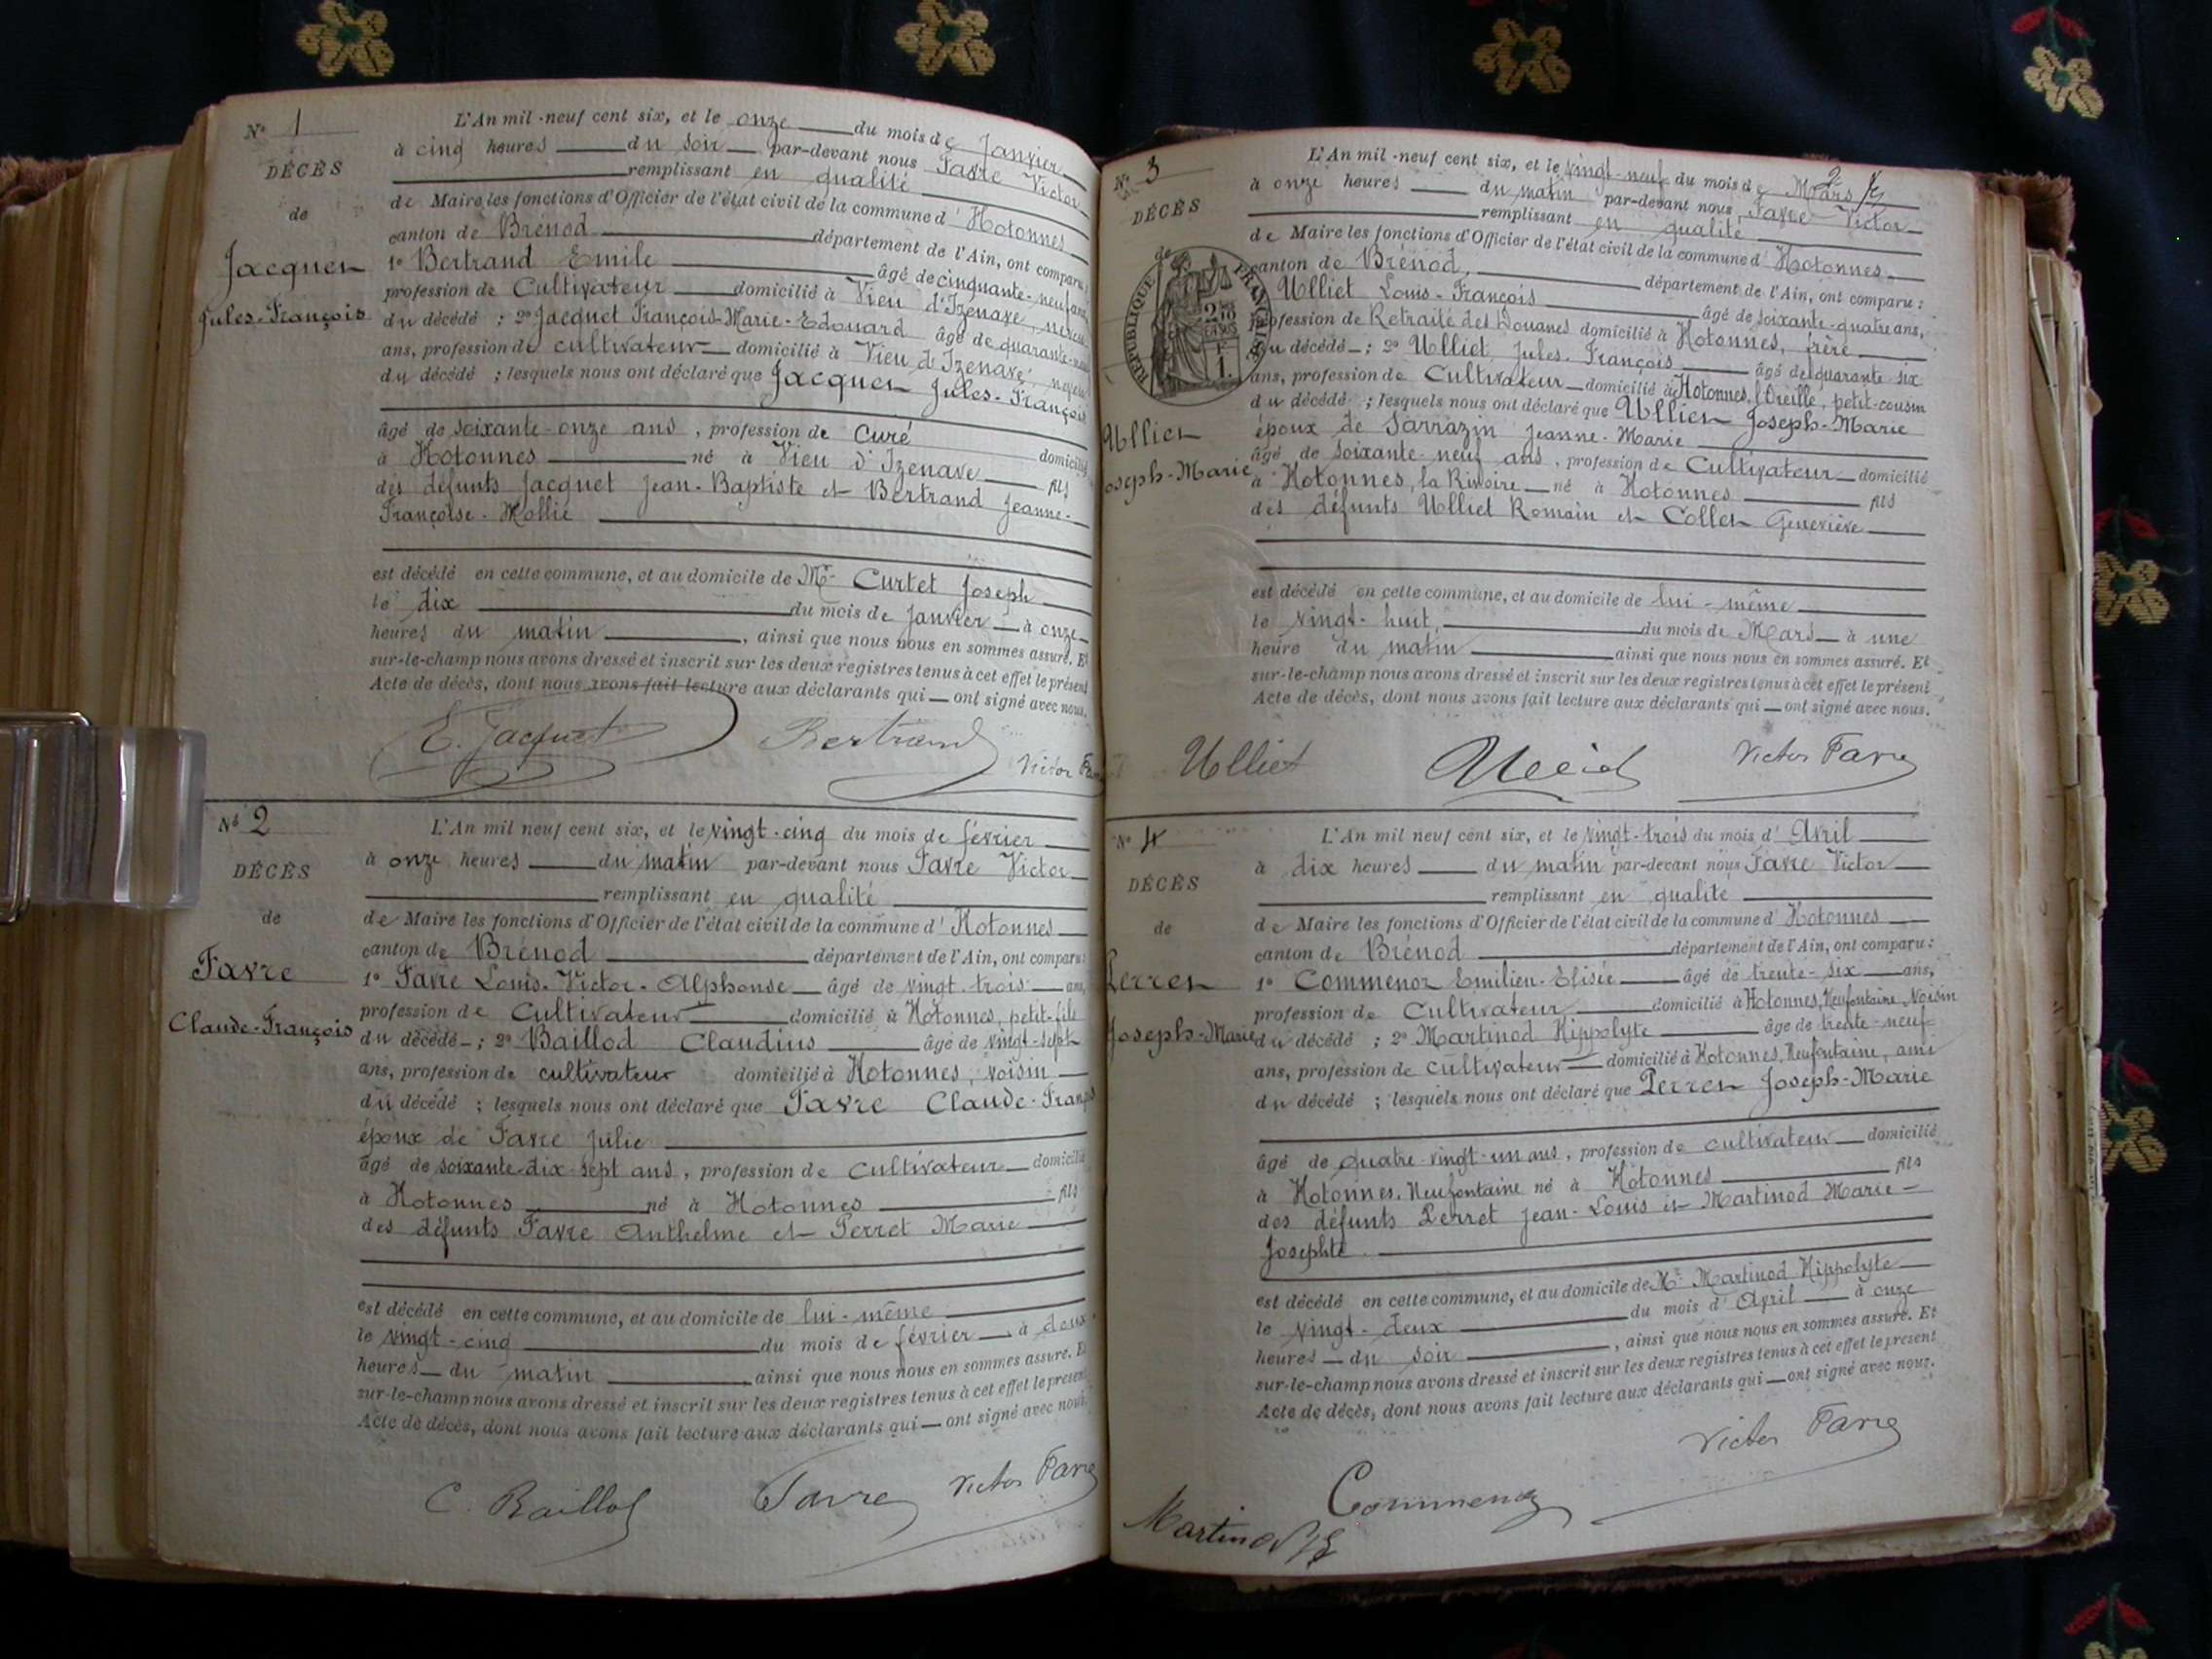 N° 1
DÉCÈS
de
Jacquet
Jules-François
L'An mil-neuf cent six, et le onze du mois de Janvier
à cinq heures du soir par-devant nous Favre Victor
remplissant en qualité
de Maire les fonctions d'Officier de l'état civil de la commune d'Hotonnes
canton de Brénod département de l'Ain, ont comparu:
1° Bertrand Emile âgé de cinquante-neuf ans,
profession de Cultivateur domicilié à Vieu d'Izenave,
du décédé ; 2° Jacquet François-Marie-Edouard âgé de quarante-
ans, profession de cultivateur domicilié à Vieu d'Izenave, neveu
du décédé ; lesquels nous ont déclaré que Jacquet Jules-François
âgé de soixante-onze ans, profession de Curé domicilié
à Hotonnes né à Vieu d'Izenave fils
des défunts Jacquet Jean-Baptiste et Bertrand Jeanne-
Françoise-Mollie
est décédé en cette commune, et au domicile de Mr Curtet Joseph
le dix du mois de Janvier à onze
heures du matin, ainsi que nous nous en sommes assuré. Et
sur-le-champ nous avons dressé et inscrit sur les deux registres tenus à cet effet le présent
Acte de décès, dont nous avons fait lecture aux déclarants qui ont signé avec nous.
E. Jacquet Bertrand Victor Favre
N° 2
DÉCÈS
de
Favre
Claude-François
L'An mil neuf cent six, et le vingt-cinq du mois de février
à onze heures du matin par-devant nous Favre Victor
remplissant en qualité
de Maire les fonctions d'Officier de l'état civil de la commune d'Hotonnes
canton de Brénod département de l'Ain, ont comparu:
1° Favre Louis-Victor-Alphonse âgé de vingt-trois ans,
profession de Cultivateur domicilié à Hotonnes, petit-fils
du décédé ; 2° Baillod Claudius âgé de vingt-sept
ans, profession de cultivateur domicilié à Hotonnes, voisin
du décédé ; lesquels nous ont déclaré que Favre Claude-François
époux de Favre Julie
âgé de soixante-dix-sept ans, profession de Cultivateur domicilié
à Hotonnes né à Hotonnes fils
des défunts Favre Anthelme et Perret Marie
est décédé en cette commune, et au domicile de lui-même
le vingt-cinq du mois de février à deux
heures du matin ainsi que nous nous en sommes assuré. Et
sur-le-champ nous avons dressé et inscrit sur les deux registres tenus à cet effet le présent
Acte de décès, dont nous avons fait lecture aux déclarants qui ont signé avec nous.
C. Baillod Favre Victor Favre
N° 3
DÉCÈS
de
RÉPUBLIQUE FRANÇAISE
Ulliet
Joseph-Marie
L'An mil-neuf cent six, et le vingt-neuf du mois de Mars
à onze heures du matin par-devant nous, Favre Victor
remplissant en qualité
de Maire les fonctions d'Officier de l'état civil de la commune d'Hotonnes
canton de Brénod, département de l'Ain, ont comparu:
Ulliet Louis-François âgé de soixante-quatre ans,
profession de Retraité des Douanes domicilié à Hotonnes, frère
du décédé ; 2° Ulliet, Jules-François âgé de quarante-six
ans, profession de Cultivateur domicilié à Hotonnes, petit-cousin
du décédé ; lesquels nous ont déclaré que Ulliet Joseph-Marie
époux de Sarrazin Jeanne-Marie
âgé de soixante-neuf ans, profession de Cultivateur domicilié
à Hotonnes, la Rivoire né à Hotonnes fils
des défunts Ulliet Romain et Collet Geneviève
est décédé en cette commune, et au domicile de lui-même
le vingt-huit, du mois de Mars à une
heure du matin ainsi que nous nous en sommes assuré. Et
sur-le-champ nous avons dressé et inscrit sur les deux registres tenus à cet effet le présent
Acte de décès, dont nous avons fait lecture aux déclarants qui ont signé avec nous.
Ulliet Ulliet Victor Favre
N° 4
DÉCÈS
de
Perret
Joseph-Marie
L'An mil neuf cent six, et le vingt-trois du mois d'Avril
à dix heures du matin par-devant nous Favre Victor
remplissant en qualité
de Maire les fonctions d'Officier de l'état civil de la commune d'Hotonnes
canton de Brénod département de l'Ain, ont comparu:
1° Commenoz Emilien-Elisée âgé de trente-six ans,
profession de Cultivateur domicilié à Hotonnes, Neufontaine, voisin
du décédé ; 2° Martinod Hippolyte âgé de trente-neuf
ans, profession de cultivateur domicilié à Hotonnes, Neufontaine, ami
du décédé ; lesquels nous ont déclaré que Perret Joseph-Marie
âgé de quatre-vingt-un ans, profession de cultivateur domicilié
à Hotonnes, Neufontaine né à Hotonnes fils
des défunts Perret Jean-Louis et Martinod Marie-
Josephte
est décédé en cette commune, et au domicile de Mr Martinod Hippolyte
le vingt-deux du mois d'Avril à onze
heures du soir, ainsi que nous nous en sommes assuré. Et
sur-le-champ nous avons dressé et inscrit sur les deux registres tenus à cet effet le présent
Acte de décès, dont nous avons fait lecture aux déclarants qui ont signé avec nous.
Victor Favre
Martinod Commenoz